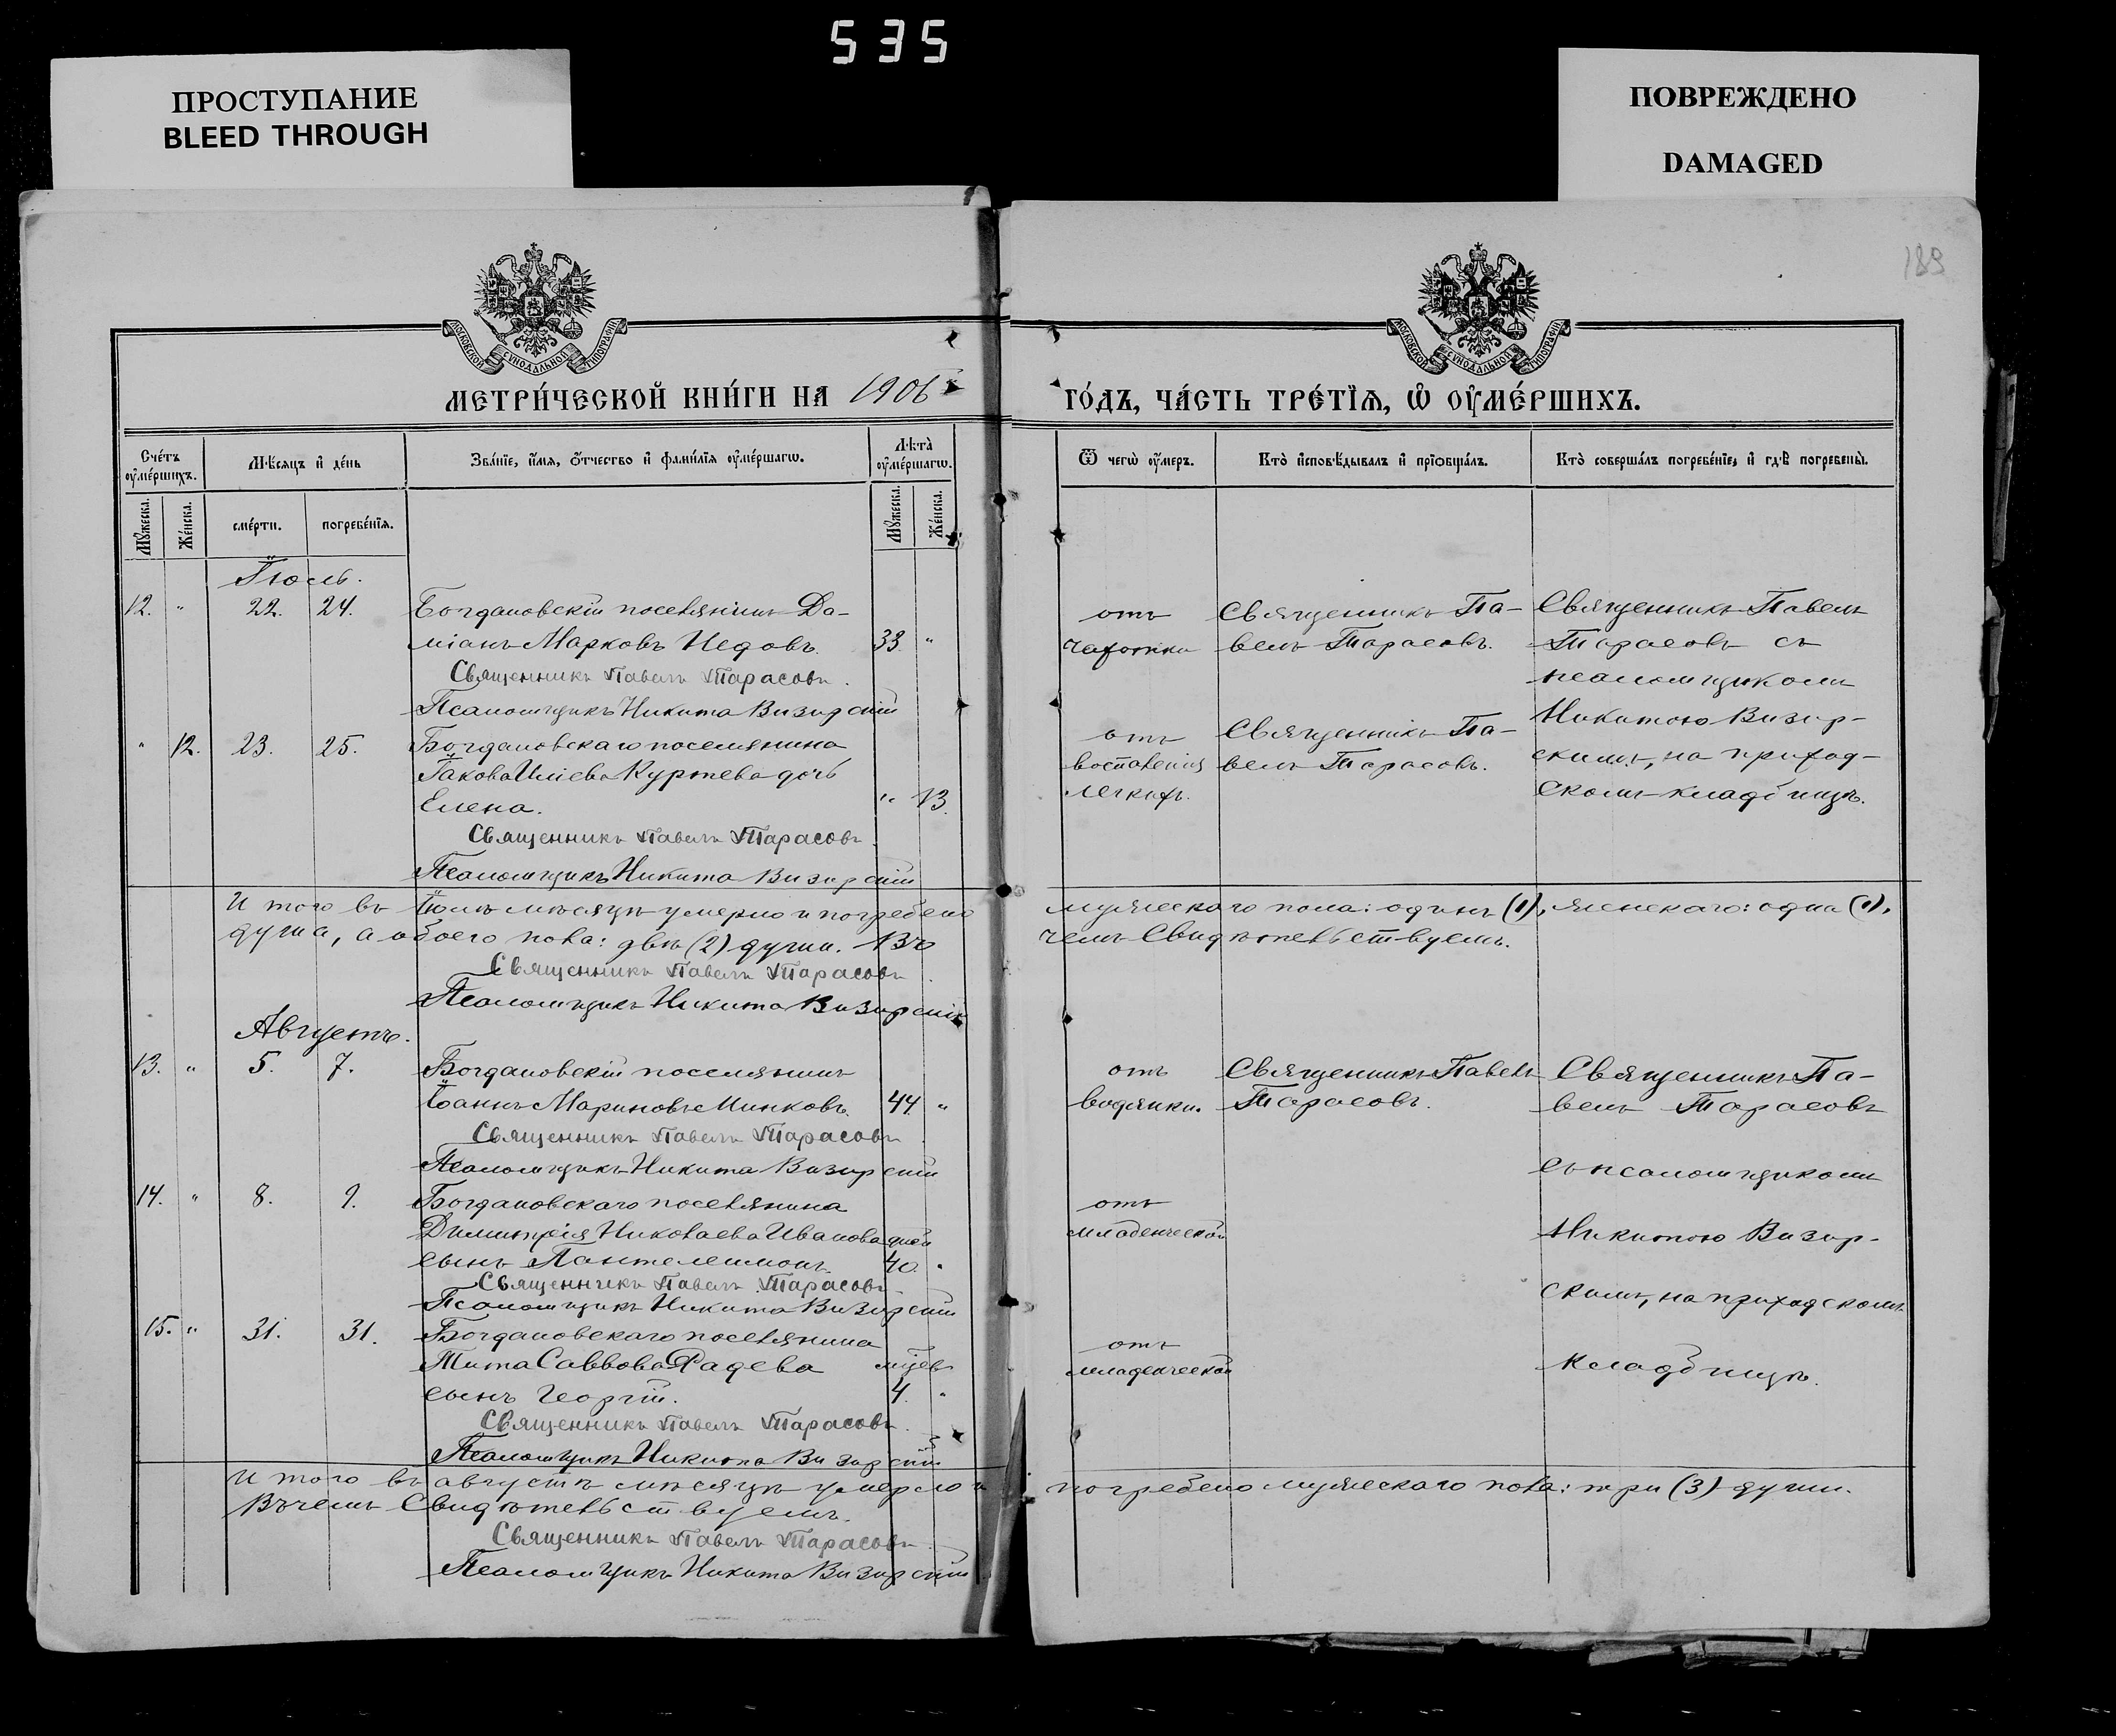 535
ПРОСТУПАНИЕ
BLEED THROUGH
ПОВРЕЖДЕНО
DAMAGED
189
МОСКОВСКОЙ СѴНОДАЛЬНОЙ ТИПОГРАФІИ
МОСКОВСКОЙ СѴНОДАЛЬНОЙ ТИПОГРАФІИ
МЕТРИ́ЧЕСКОЙ КНИ́ГИ НА 1906
ГО́ДЪ, ЧА́СТЬ ТРЕ́ТІѦ, Ѡ҆ ОУ҆МЕ́РШИХЪ.
Сче́тъ оу҆ме́ршихъ.
Мѣ́сяцъ и҆ де́нь
Зва́нїе, и҆́мя, ѻ҆́тчество и҆ фами́лїя оу҆ме́ршагѡ.
Лѣта̀ оу҆ме́ршагѡ.
Ѿ чегѡ̀ оу҆́меръ.
Кто̀ и҆сповѣ́дывалъ и҆ прїѡбща́лъ.
Кто̀ соверша́лъ погребе́нїе, и҆ гдѣ̀ погребены̀.
Мꙋ́жеска.
Же́нска.
сме́рти.
погребе́нїѧ.
Мꙋ́жеска.
Же́нска.
Іюль.
12. " 22. 24. Богдановскій поселянинъ Да-
міанъ Марковъ Недовъ. 33. "
Священникъ Павелъ Тарасовъ.
Псаломщикъ Никита Визирскій
отъ
чахотки
Священникъ Па-
велъ Тарасовъ.
Священникъ Павелъ
Тарасовъ съ
псаломщикомъ
Никитою Визир-
скимъ, на приход-
скомъ кладбищѣ.
" 12. 23. 25. Богдановскаго поселянина
Іакова Иліева Куртева дочь
Елена. " 13.
Священникъ Павелъ Тарасовъ.
Псаломщикъ Никита Визирскій
отъ
воспаленія
легкихъ.
Священникъ Па-
велъ Тарасовъ.
Итого въ Іюлѣ мѣсяцѣ умерло и погребено мужескаго пола: одинъ (1), женскаго: одна (1).
душа, а обоего пола: двѣ (2) души. Въ чемъ свидѣтельствуемъ.
Священникъ Павелъ Тарасовъ
Псаломщикъ Никита Визирскій
Августъ.
13. " 5. 7. Богдановскій поселянинъ
Іоаннъ Мариновъ Минковъ. 44 "
Священникъ Павелъ Тарасовъ
Псаломщикъ Никита Визирскій
отъ
водянки.
Священникъ Павелъ
Тарасовъ.
Священникъ Па-
велъ Тарасовъ
съ псаломщикомъ
Никитою Визир-
скимъ, на приходскомъ
кладбищѣ.
14. " 8. 9. Богдановскаго поселянина
Димитрія Николаева Иванова дней
сынъ Пантелеимонъ. 40. "
Священникъ Павелъ Тарасовъ
Псаломщикъ Никита Визирскій
отъ
младенческой
15. " 31. 31. Богдановскаго поселянина
Тита Саввова Радева мѣсяц.
сынъ Георгій. 4. "
Священникъ Павелъ Тарасовъ.
Псаломщикъ Никита Визирскій
отъ
младенческой
Итого въ августѣ мѣсяцѣ умерло и погребено мужескаго пола: три (3) души.
Въ чемъ свидѣтельствуемъ.
Священникъ Павелъ Тарасовъ.
Псаломщикъ Никита Визирскій